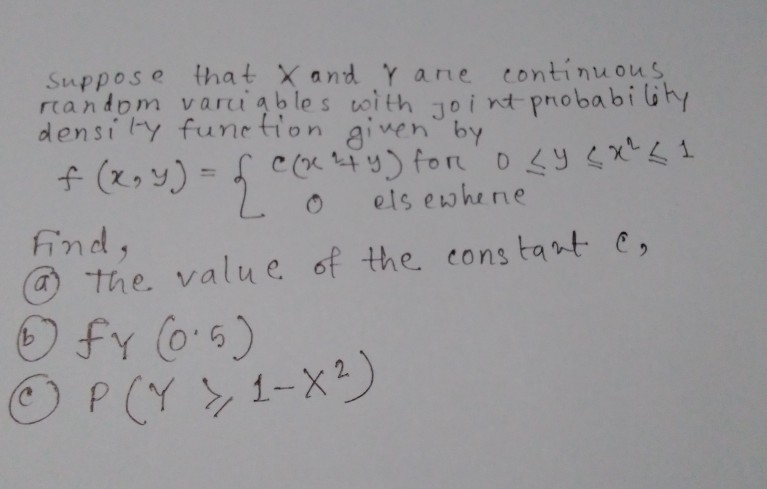 suppose that X and Y are continuous
random variables with joint probability
density function given by
f (x, y) = { c(x²+y) for 0 ≤ y ≤ x² ≤ 1
0 elsewhere
Find,
ⓐ the value of the constant c,
ⓑ fY (0.5)
ⓒ P(Y ≥ 1-X²)